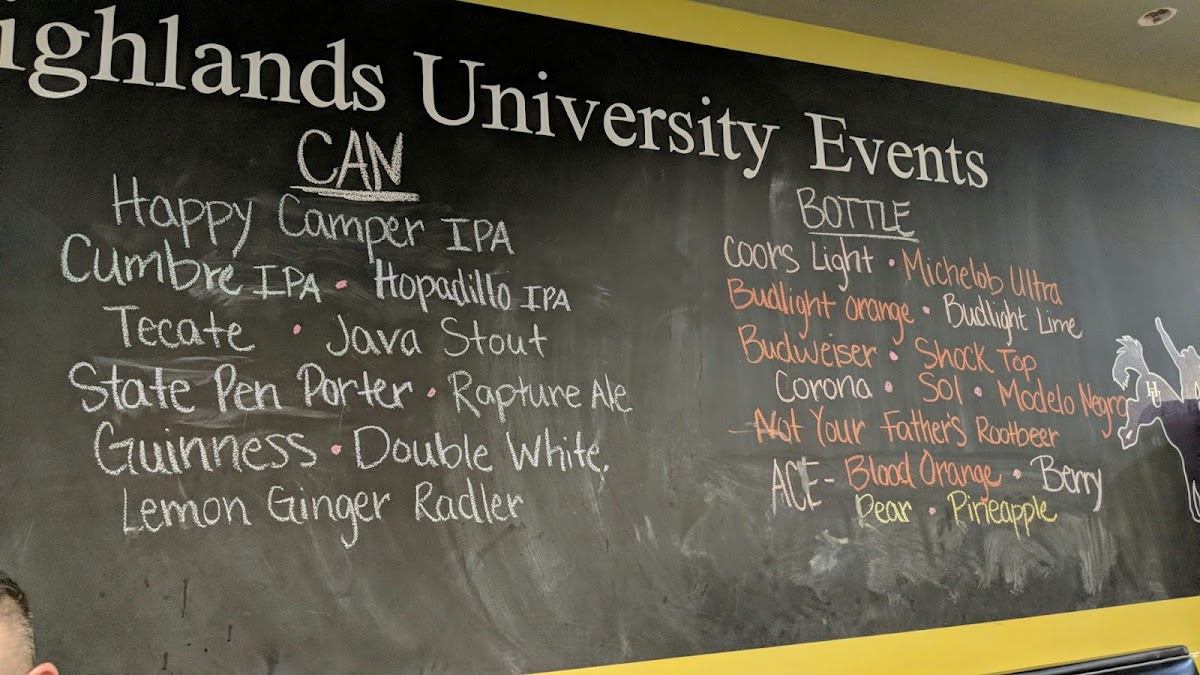 ighlands University Events
CAN
Happy Camper IPA
Cumbre IPA • Hopadillo IPA
Tecate • Java Stout
State Pen Porter • Rapture Ale
Guinness • Double White
Lemon Ginger Radler
BOTTLE
Coors Light • Michelob Ultra
Budlight orange • Budlight Lime
Budweiser • Shock Top
Corona • Sol • Modelo Negro
Not Your Father's Rootbeer
ACE - Blood Orange • Berry
Pear • Pineapple
HU